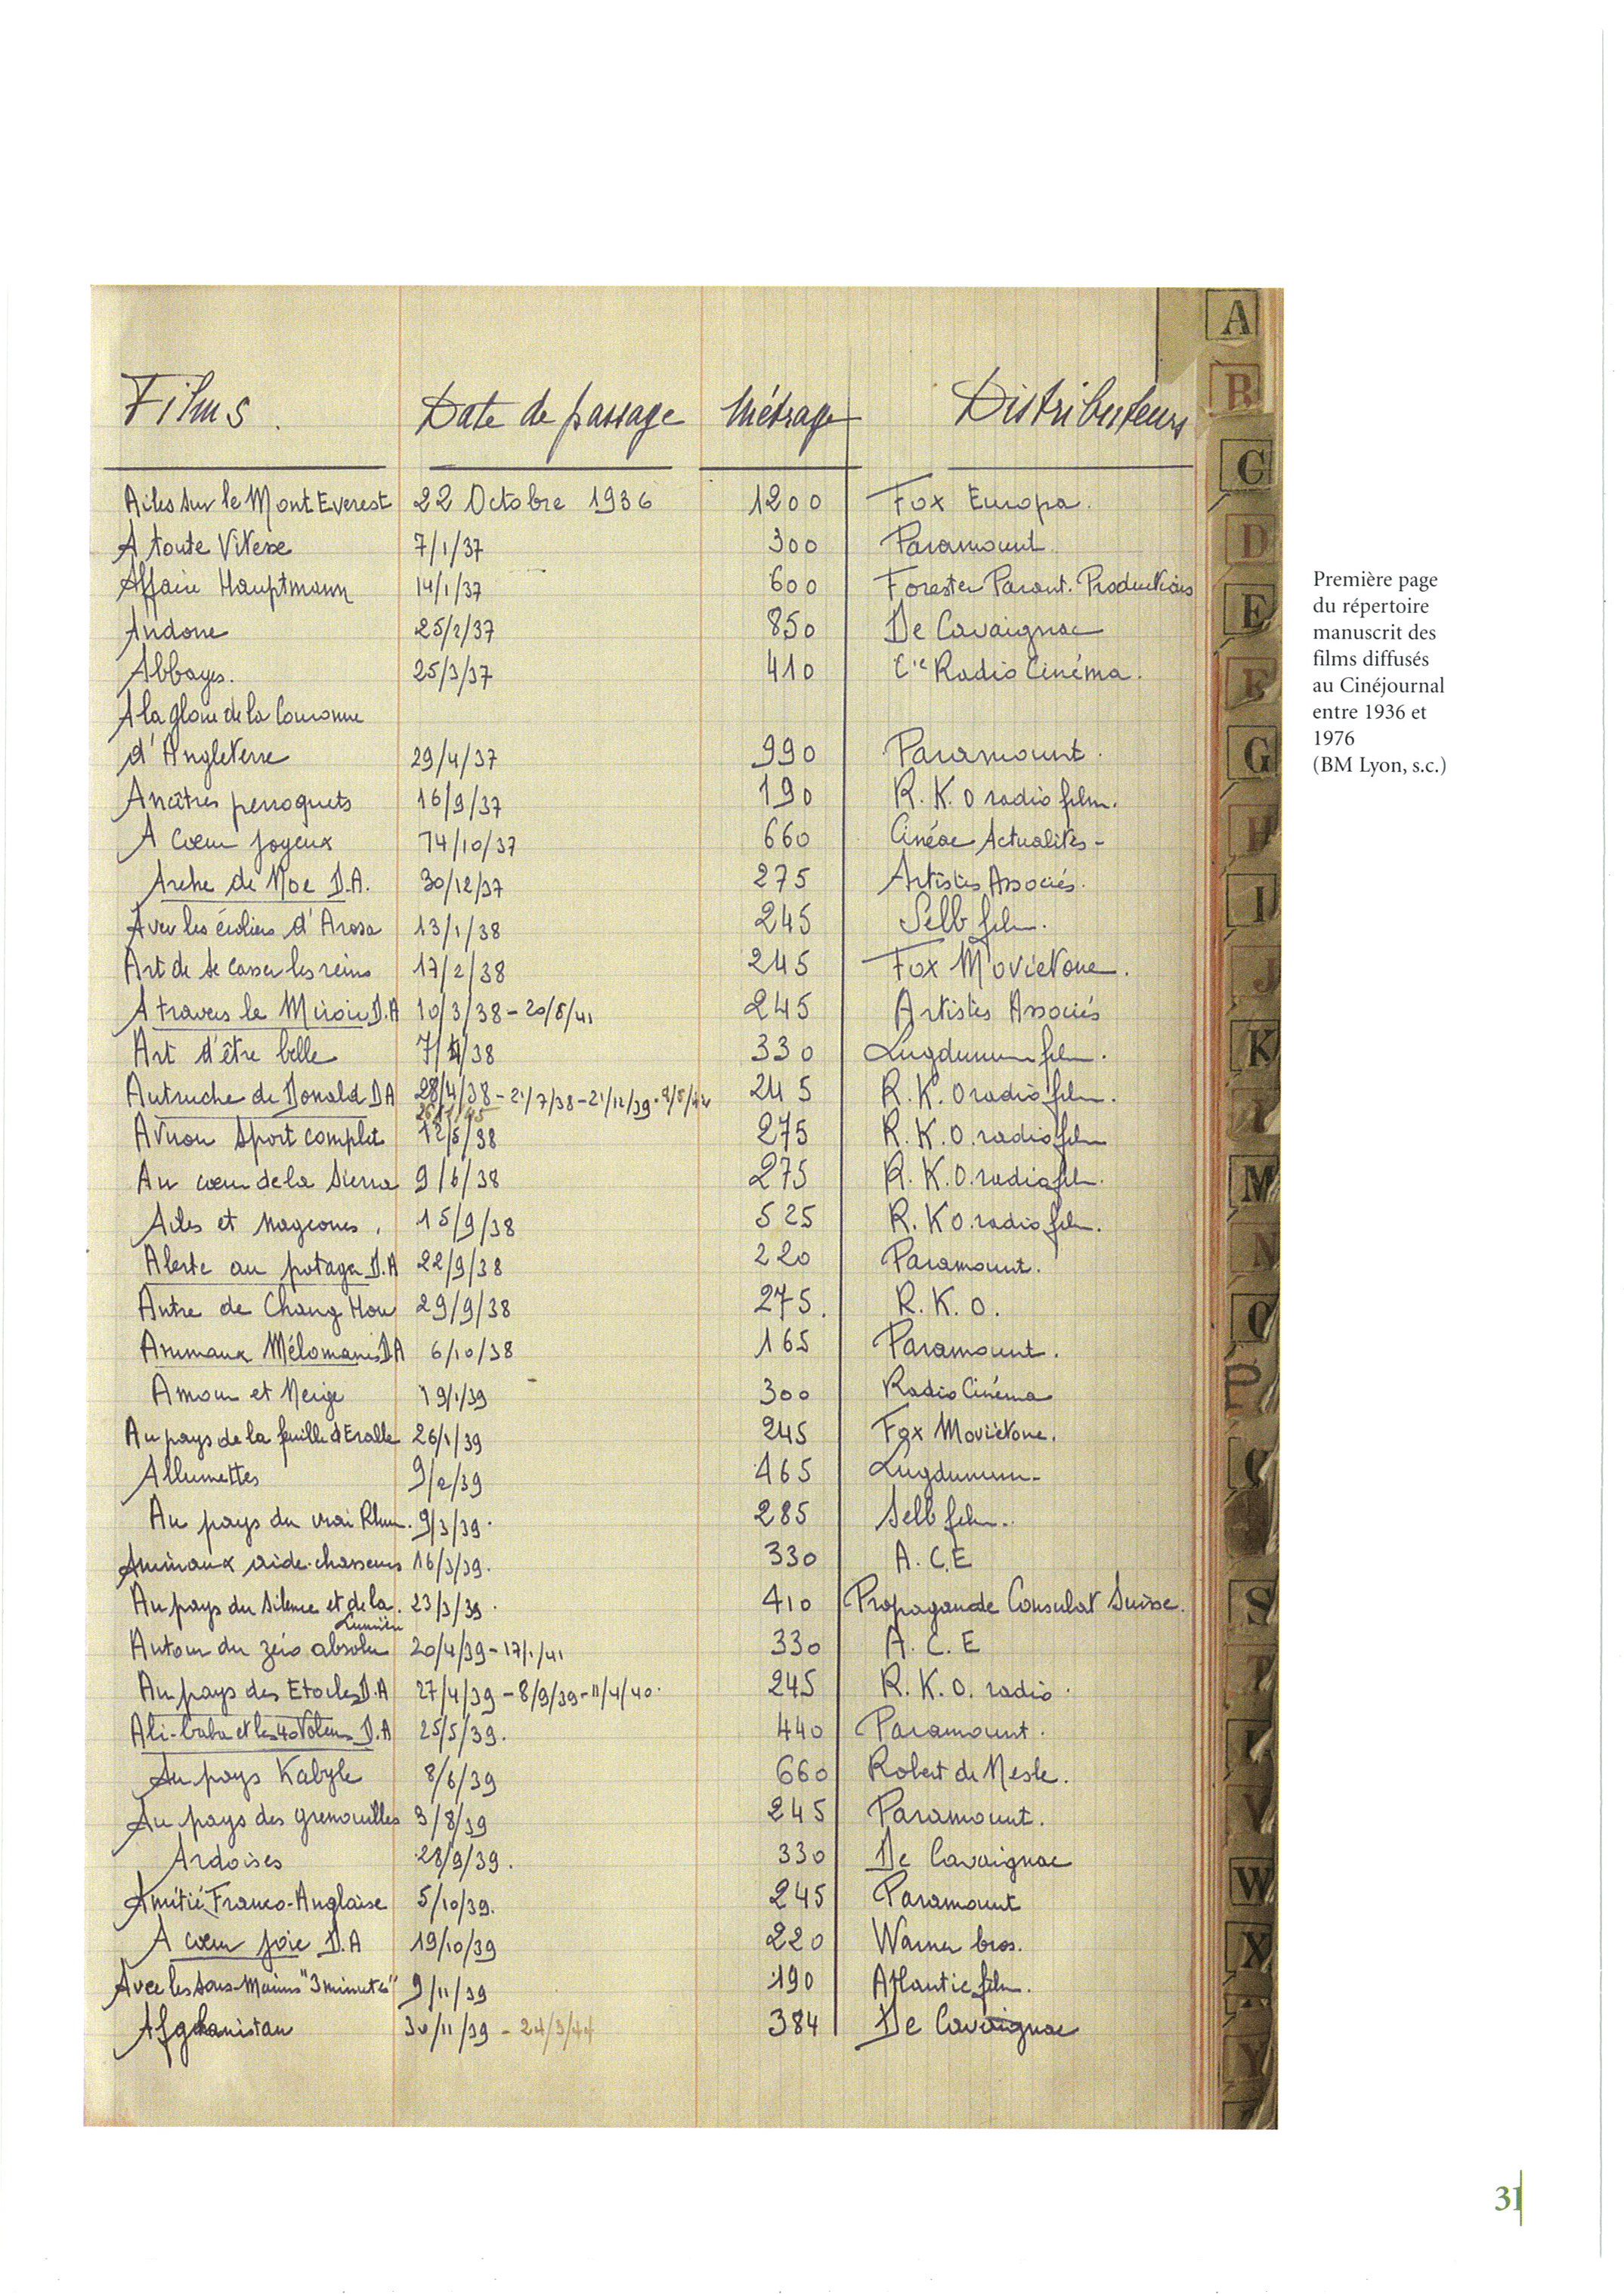 Films. Date de passage Métrage Distributeurs
Ailes sur le Mont Everest 22 Octobre 1936 1200 Fox Europa.
A toute Vitesse 7/1/37 300 Paramount.
Affaire Hauptmann 14/1/37 600 Forester Parant. Productions
Andorre 25/2/37 850 De Cavaignac
Abbayes. 25/3/37 410 Cie Radio Cinéma.
A la gloire de la Couronne
d'Angleterre 29/4/37 990 Paramount.
Ancêtres perroquets 16/9/37 190 R.K.O radio film.
A cœur joyeux 14/10/37 660 Cinéac Actualités -
Arche de Noe D.A. 30/12/37 275 Artistes Associés.
Avec les écoliers d'Arosa 13/1/38 245 Selb film.
Art de se casser les reins 17/2/38 245 Fox Movietone.
A travers le Miroir D.A 10/3/38 - 20/5/41 245 Artistes Associés
Art d'être belle 7/4/38 330 Lugdunum film.
Autruche de Donald DA 28/4/38 - 21/7/38 - 21/12/39 - 245 R.K.O radio film.
Aviron Sport complet 12/5/38 275 R.K.O. radio film
Au cœur de la Sierra 9/6/38 275 R.K.O. radio film.
Ailes et nageoires. 15/9/38 525 R.K.O. radio film.
Alerte au potager D.A 22/9/38 220 Paramount.
Antre de Chang Hou 29/9/38 275. R.K.O.
Animaux Mélomanes DA 6/10/38 165 Paramount.
Amour et Neige 19/1/39 300 Radio Cinéma
Au pays de la feuille d'Erable 26/1/39 245 Fox Movietone.
Allumettes 9/2/39 465 Lugdunum -
Au pays du vrai Rhum. 9/3/39. 285 Selb film.
Animaux aide-chasseurs 16/3/39. 330 A.C.E
Au pays du Silence et de la. 23/3/39. 410 Propagande Consulat Suisse.
Lumière
Autour du zéro absolu 20/4/39 - 17/1/41 330 A.C.E
Au pays des Etoiles D.A 27/4/39 - 8/9/39 - 11/4/40. 245 R.K.O. radio.
Ali-baba et les 40 Voleurs D.A 25/5/39. 440 Paramount.
Au pays Kabyle 8/6/39 660 Robert de Nesle.
Au pays des grenouilles 3/8/39 245 Paramount.
Ardoises 28/9/39. 330 De Cavaignac
Amitié Franco-Anglaise 5/10/39. 245 Paramount
A cœur joie D.A 19/10/39 220 Warner bros.
Avec les Sous-Marins "3 minutes" 9/11/39 190 Atlantic film.
Afghanistan 30/11/39 - 24/3/44 384 De Cavaignac
A
B
C
D
E
F
G
H
I
J
K
M
N
O
P
S
T
V
W
X
Y
Première page
du répertoire
manuscrit des
films diffusés
au Cinéjournal
entre 1936 et
1976
(BM Lyon, s.c.)
31